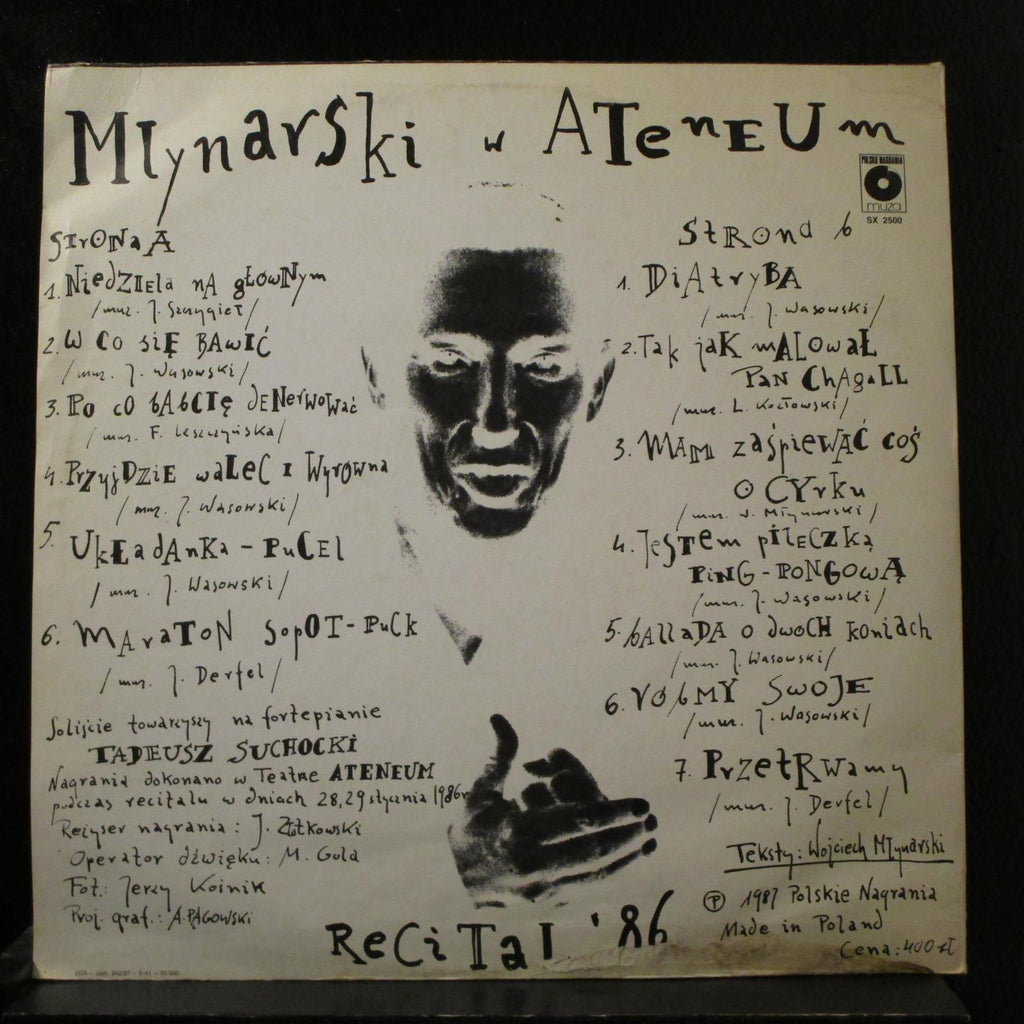 Młynarski w ATeneum
POLSKIE NAGRANIA
muza
SX 2500
Strona A
1. Niedziela na głównym
/muz. J. Szczygieł/
2. W co się bawić
/muz. J. Wasowski/
3. Po co babcię denerwować
/muz. F. Leszczyńska/
4. Przyjdzie walec i wyrówna
/muz. J. Wasowski/
5. Układanka - Pucel
/muz. J. Wasowski/
6. Maraton Sopot - Puck
/muz. J. Derfel/
Soliście towarzyszy na fortepianie
TADEUSZ SUCHOCKI
Nagrania dokonano w Teatrze ATENEUM
podczas recitalu w dniach 28, 29 stycznia 1986r
Reżyser nagrania: J. Złotkowski
Operator dźwięku: M. Gola
Fot.: Jerzy Kośnik
Proj. graf.: A. PĄGOWSKI
Strona b
1. Diatryba
/muz. J. Wasowski/
2. Tak jak malował
Pan Chagall
/muz. L. Kozłowski/
3. Mam zaśpiewać coś
o cyrku
/muz. W. Młynarski/
4. Jestem piłeczką
ping-pongową
/muz. J. Wasowski/
5. Ballada o dwóch koniach
/muz. J. Wasowski/
6. Róbmy swoje
/muz. J. Wasowski/
7. Przetrwamy
/muz. J. Derfel/
Teksty: Wojciech Młynarski
Ⓟ 1987 Polskie Nagrania
Made in Poland
Cena: 400 zł
Recital '86